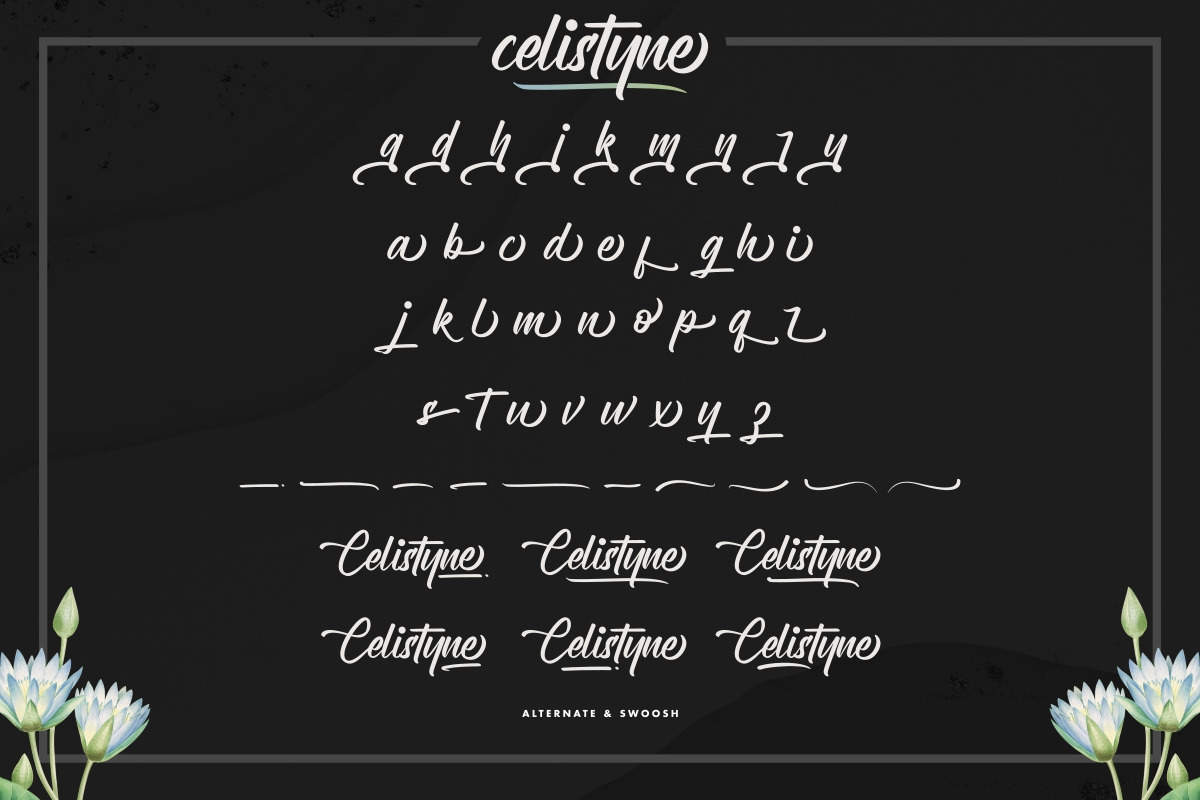 celistyne
a d h i k m n r u
a b c d e f g h i
j k l m n o p q r
s t u v w x y z
Celistyne Celistyne Celistyne
Celistyne Celistyne Celistyne
ALTERNATE & SWOOSH